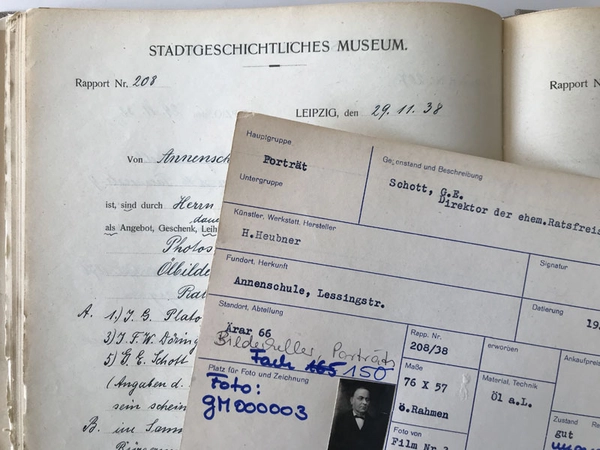 STADTGESCHICHTLICHES MUSEUM.
Rapport Nr. 208
Rapport N
LEIPZIG, den 29.11.38
Von Annensch
ist, sind durch Herrn
als Angebot, Geschenk, Leih
Photos
Ölbilde
A. 1) J. G. Plato
3) J. F. W. Döring
5) G. E. Schott
(Angaben d.
sein schein
B. im Sam
Hauptgruppe
Porträt
Untergruppe
Gegenstand und Beschreibung
Schott, G.E.
Direktor der ehem.Ratsfreis
Künstler, Werkstatt, Hersteller
H.Heubner
Signatur
Fundort, Herkunft
Annenschule, Lessingstr.
Datierung
19
Standort, Abteilung
Ärar 66
Bilderkeller, Porträts
Fach 165 150
Rapp. Nr.
208/38
erworben
Ankaufsprei
Maße
76 X 57
ö.Rahmen
Material, Technik
öl a.L.
Platz für Foto und Zeichnung
Foto:
GM000003
Foto von
Film Nr.
Zustand
gut